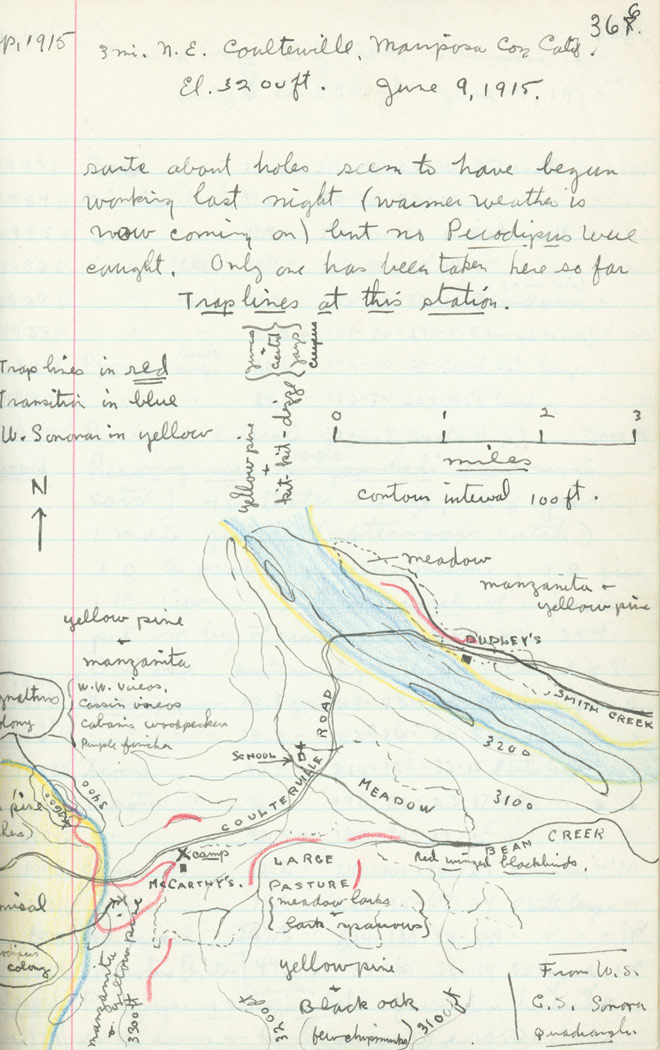 1915
3 mi. N.E. Coulteville, Mariposa Co., Calif.
El. 3200 ft. June 9, 1915.
about holes seem to have begun
working last night (warmer weather is
now coming on) but no Perodipus were
caught. Only one has been taken here so far
Trap lines at this station.
Trap lines in red
Transition in blue
W. Sonoran in yellow
yellow pine
+
kit-kit-dizze
jays
0 1 2 3
miles
contour interval 100 ft.
N
meadow
manzanita +
yellow pine
DUDLEY'S
SMITH CREEK
yellow pine
+
manzanita
W.W. Vireos.
Cassin vireos
Cabanis woodpeckers
Purple finches
colony
SCHOOL
COULTERVILLE ROAD
MEADOW
3200
3100
3400
pine
BEAN CREEK
Red winged blackbirds.
X camp
McCARTHY'S.
LARGE
PASTURE
meadow larks
+
lark sparrows
colony
manzanita
+ yellow pine
3300 ft
yellow pine
+
Black oak
(few chipmunks)
3200 ft
3100 ft
From U.S.
G.S. Sonora
Quadrangle.